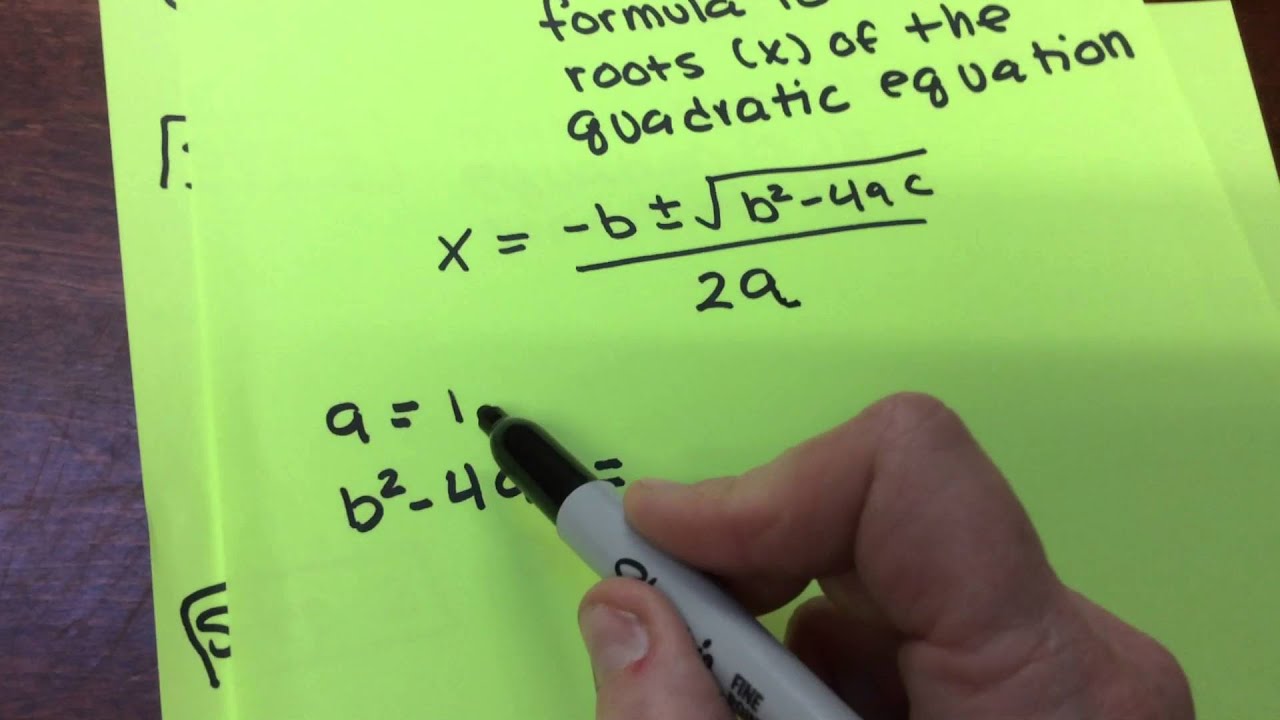 formula
roots (x) of the
quadratic equation
x = -b ± √b² - 4ac
2a
a = 1
b² - 4 =
FINE